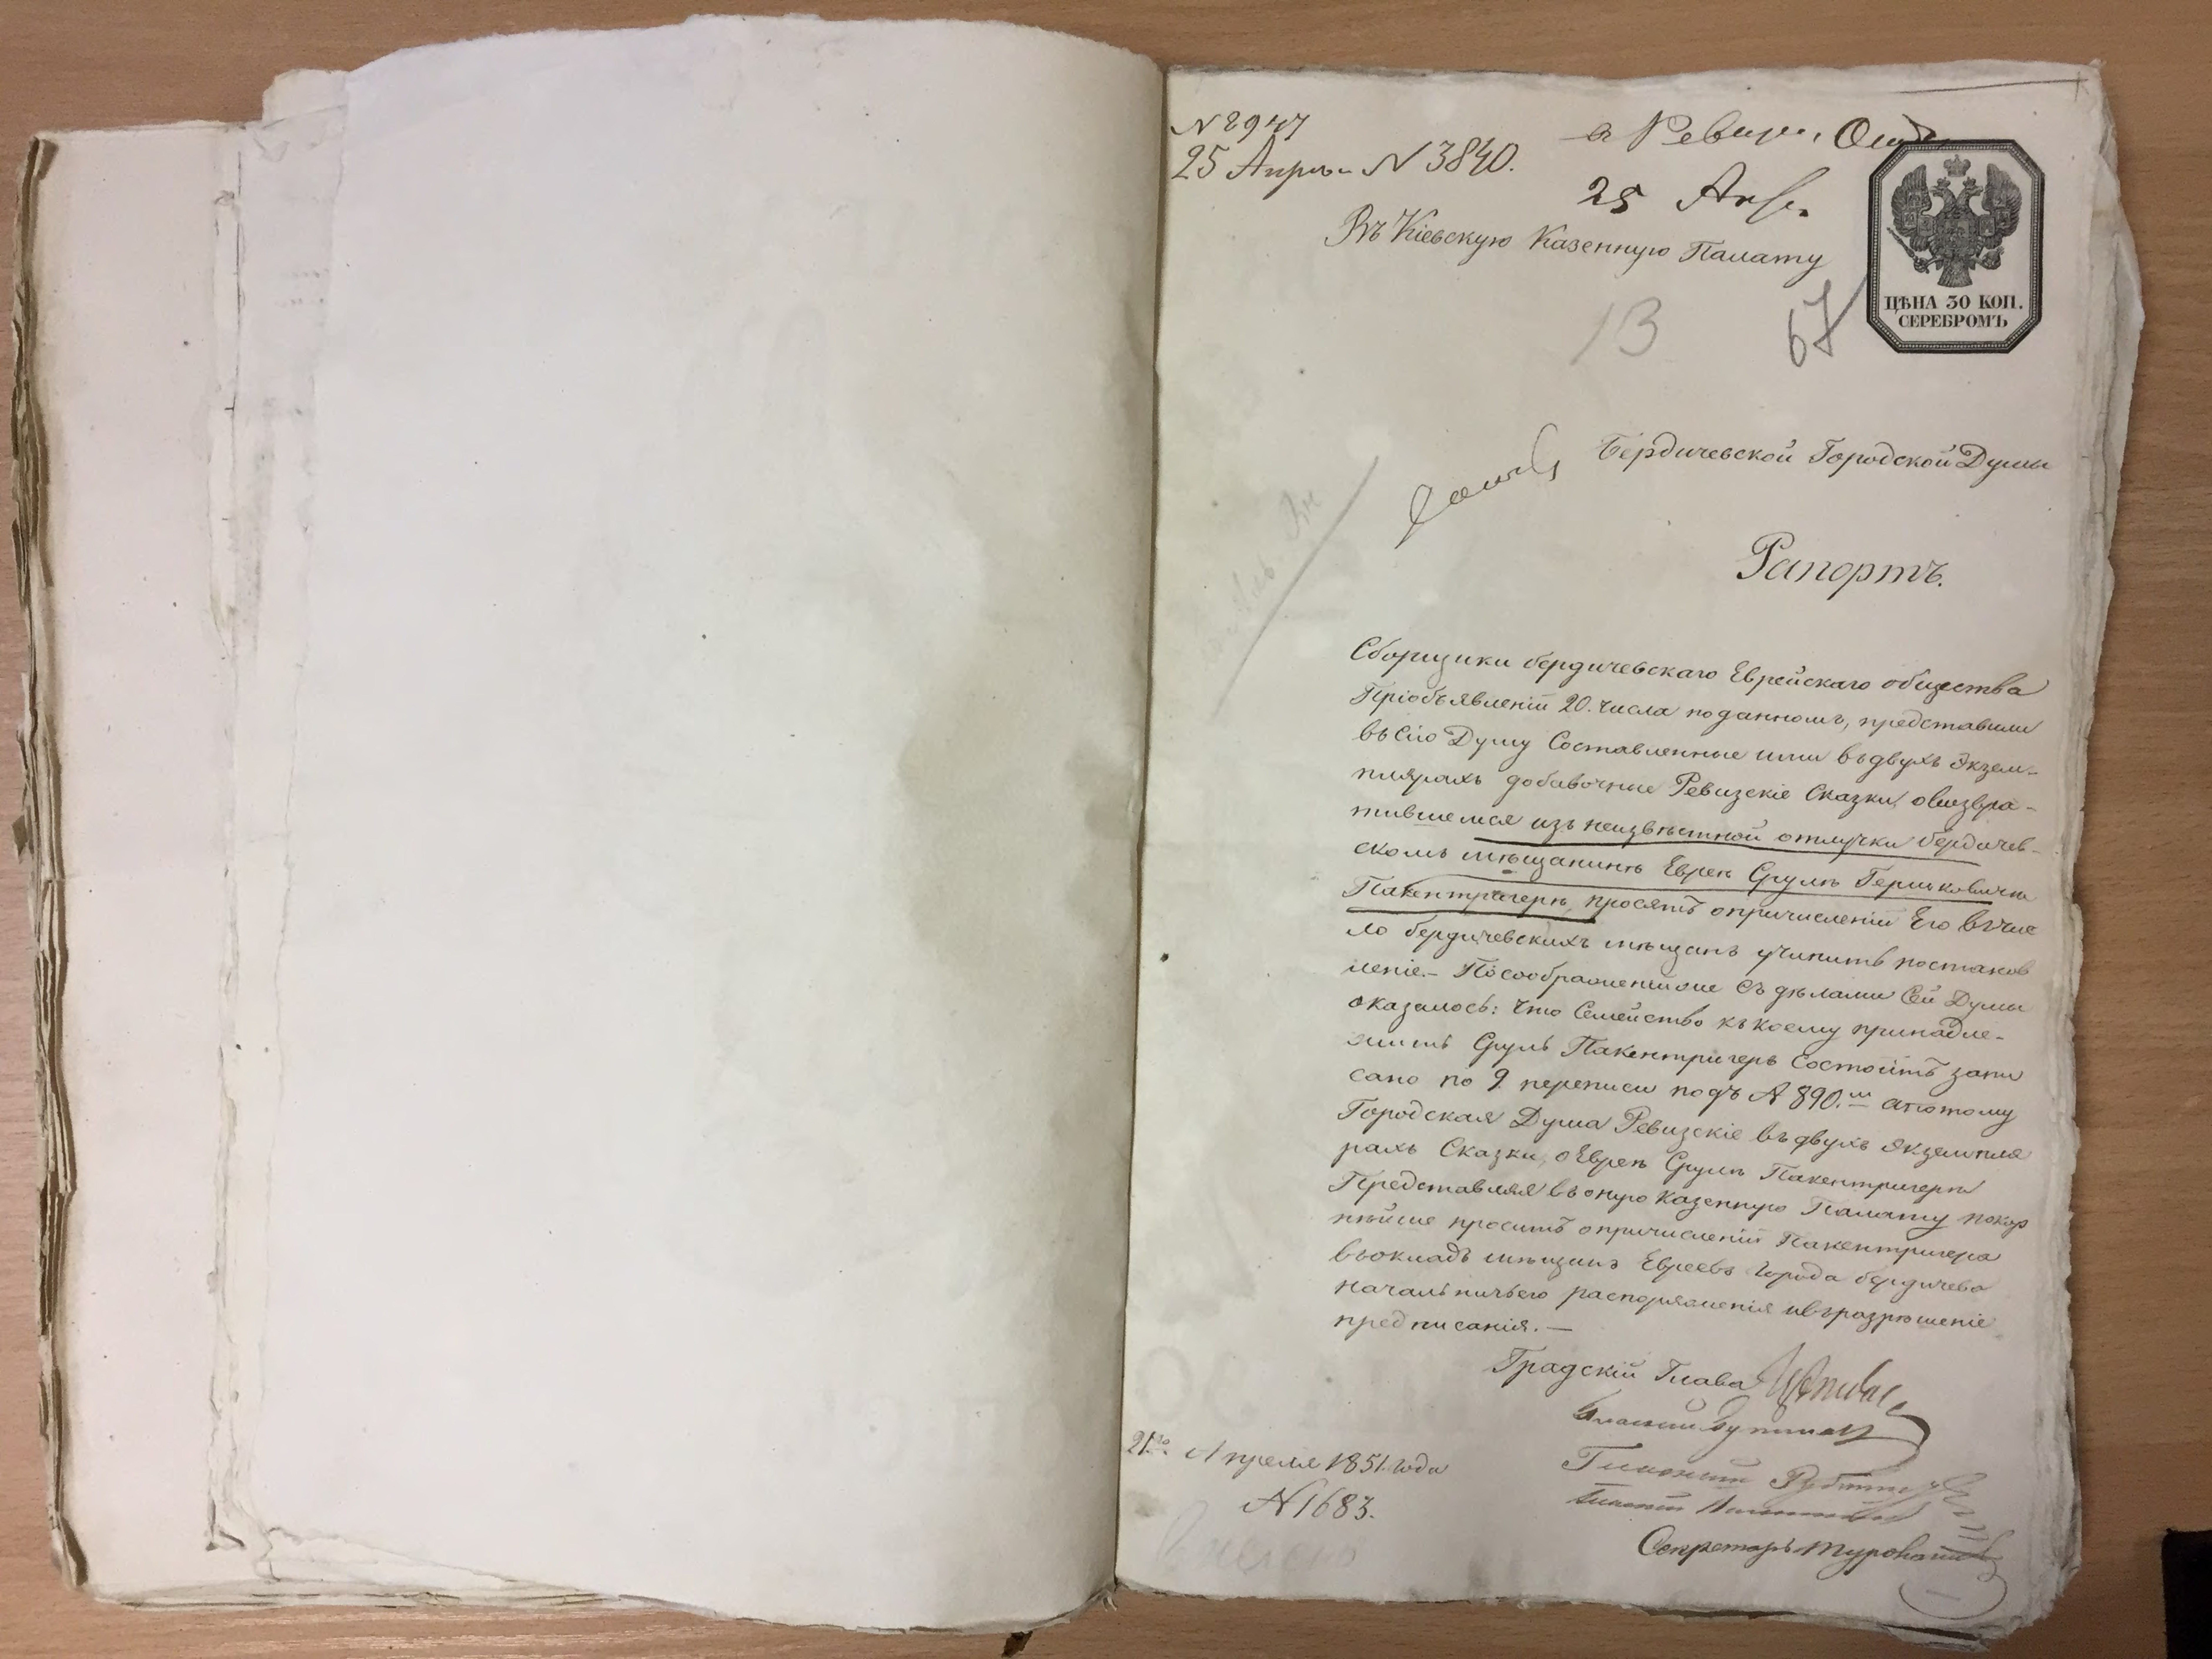 N 2947
25 Апрѣл N 3840.
в Ревиз. Отд.
25 Апр.
Въ Кіевскую Казенную Палату
ЦѢНА 30 КОП.
СЕРЕБРОМЪ
13
67
Бердичевской Городской Думы
Рапортъ.
Сборщики бердичевскаго Еврейскаго общества
Пріобъявленіи 20. числа поданномъ, представили
въ Сію Думу Составленные ими въ двухъ Экзем-
плярахъ добавочные Ревизскіе Сказки, овозвра-
тившемся изъ неизвѣстной отлучки бердичев-
скомъ мѣщанинѣ Евреѣ Срулѣ Гершковичѣ
Пакентрегерѣ, просятъ опричисленіи Его въ чис
ло бердичевскихъ мѣщанъ учинить постанов
леніе.- Посоображеніи же Съ дѣлами Сей Думы
оказалось: что Семейство къ коему принадле-
житъ Сруль Пакентригеръ Состоитъ запи
сано по 9 переписи подъ N 890.м апотому
Городская Дума Ревизскіе въ двухъ экземпля
рахъ Сказки, о Евреѣ Срулѣ Пакентригерѣ
Представляя въ оную Казенную Палату покор
нѣйше проситъ опричисленіи Пакентригера
въ окладъ мѣщанъ Евреевъ города бердичева
начальничьего распоряженія ивъразрѣшеніе
предписанія. —
Градскій Глава
Гласный
Гласный
Гласный
Секретарь
21го Апреля 1851. года
N 1683.